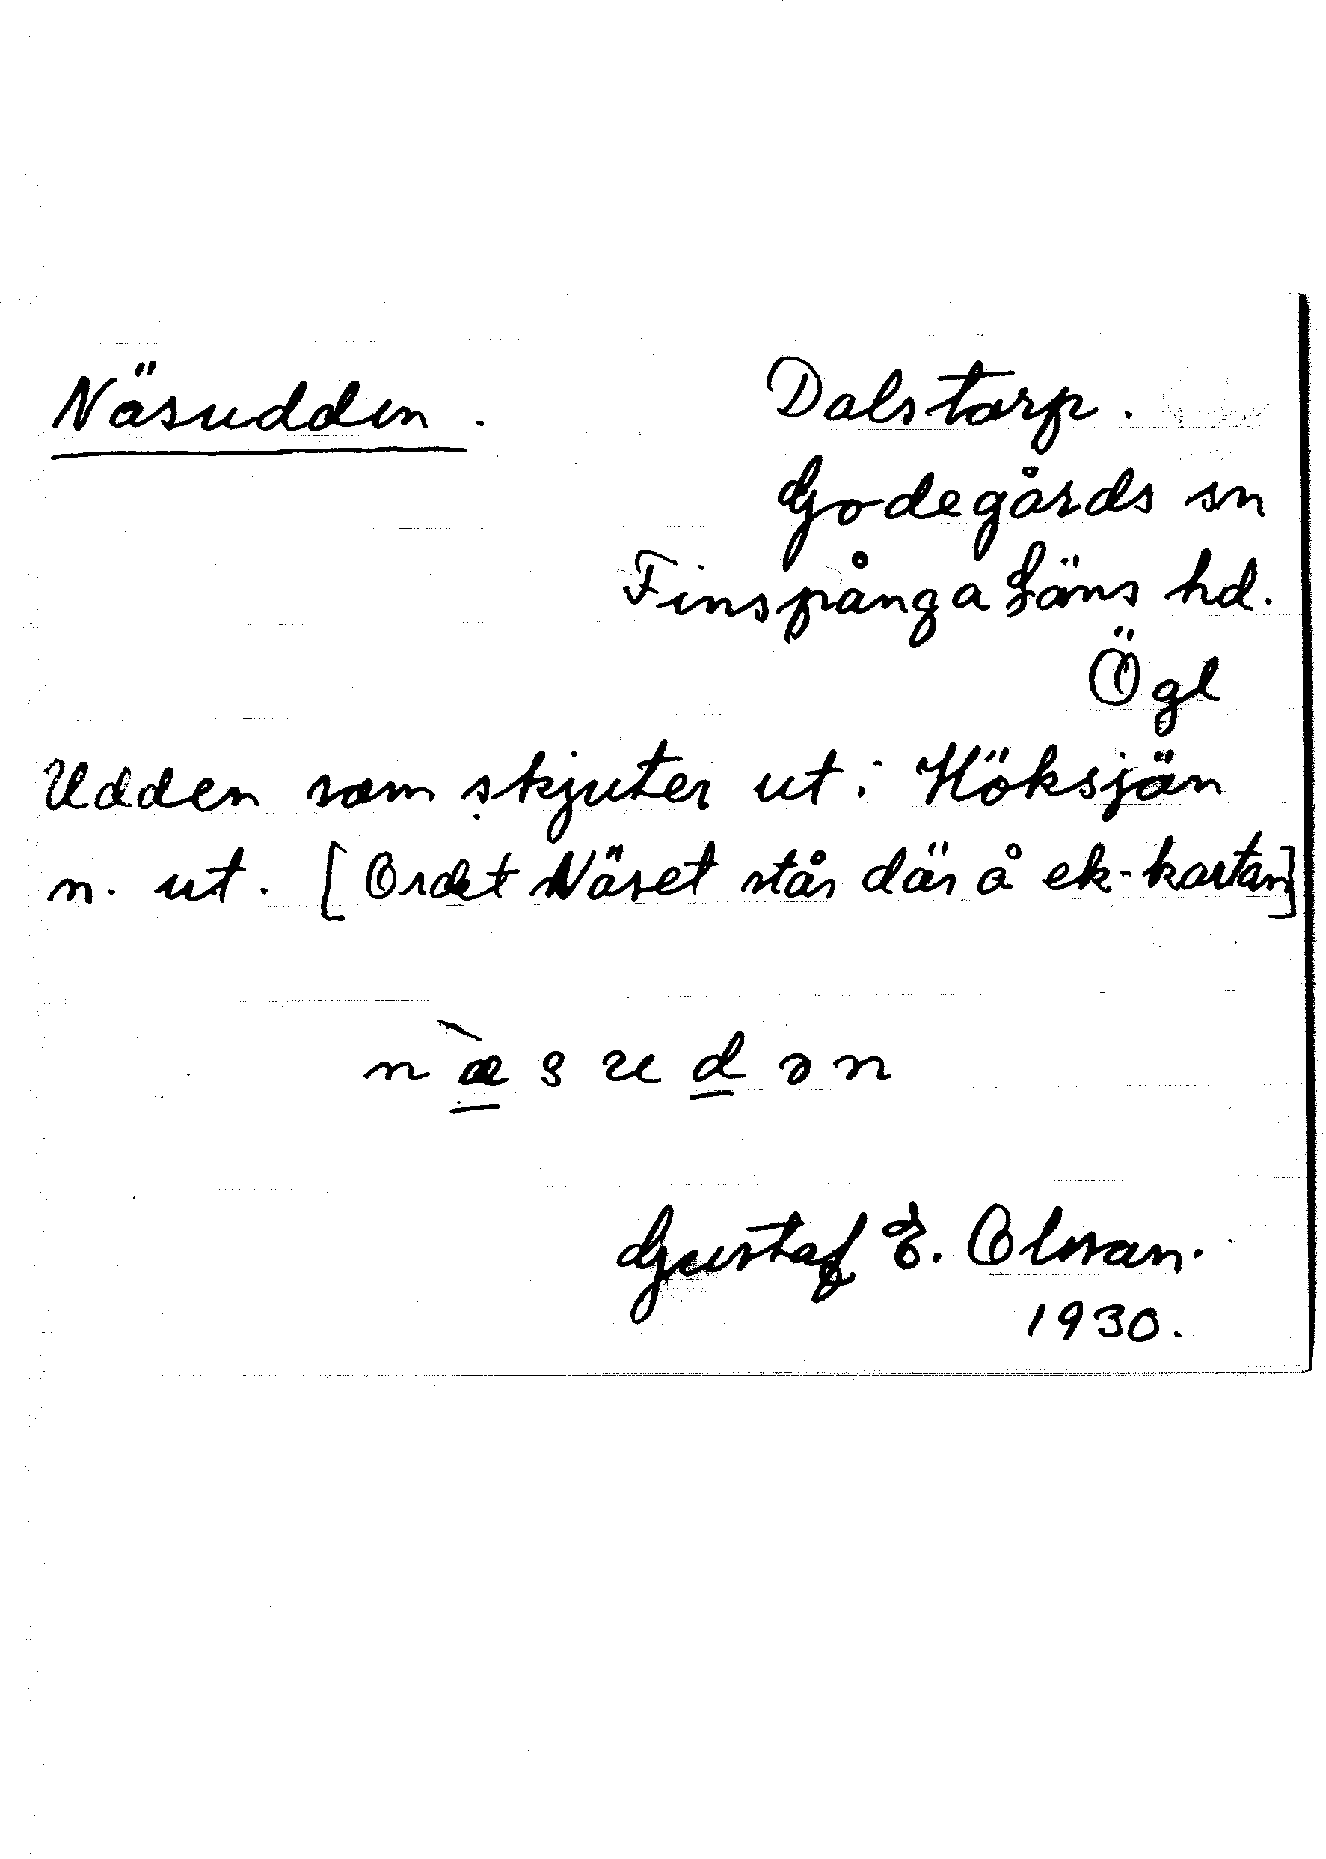 Näsudden.
Dalstorp.
Godegårds sn
Finspånga Läns hd.
Ögl
Udden som skjuter ut i Höksjön
n. ut. [Ordet Näset står där å ek-kartan]
n æ s u d ə n
Gustaf E. Olsson.
1930.